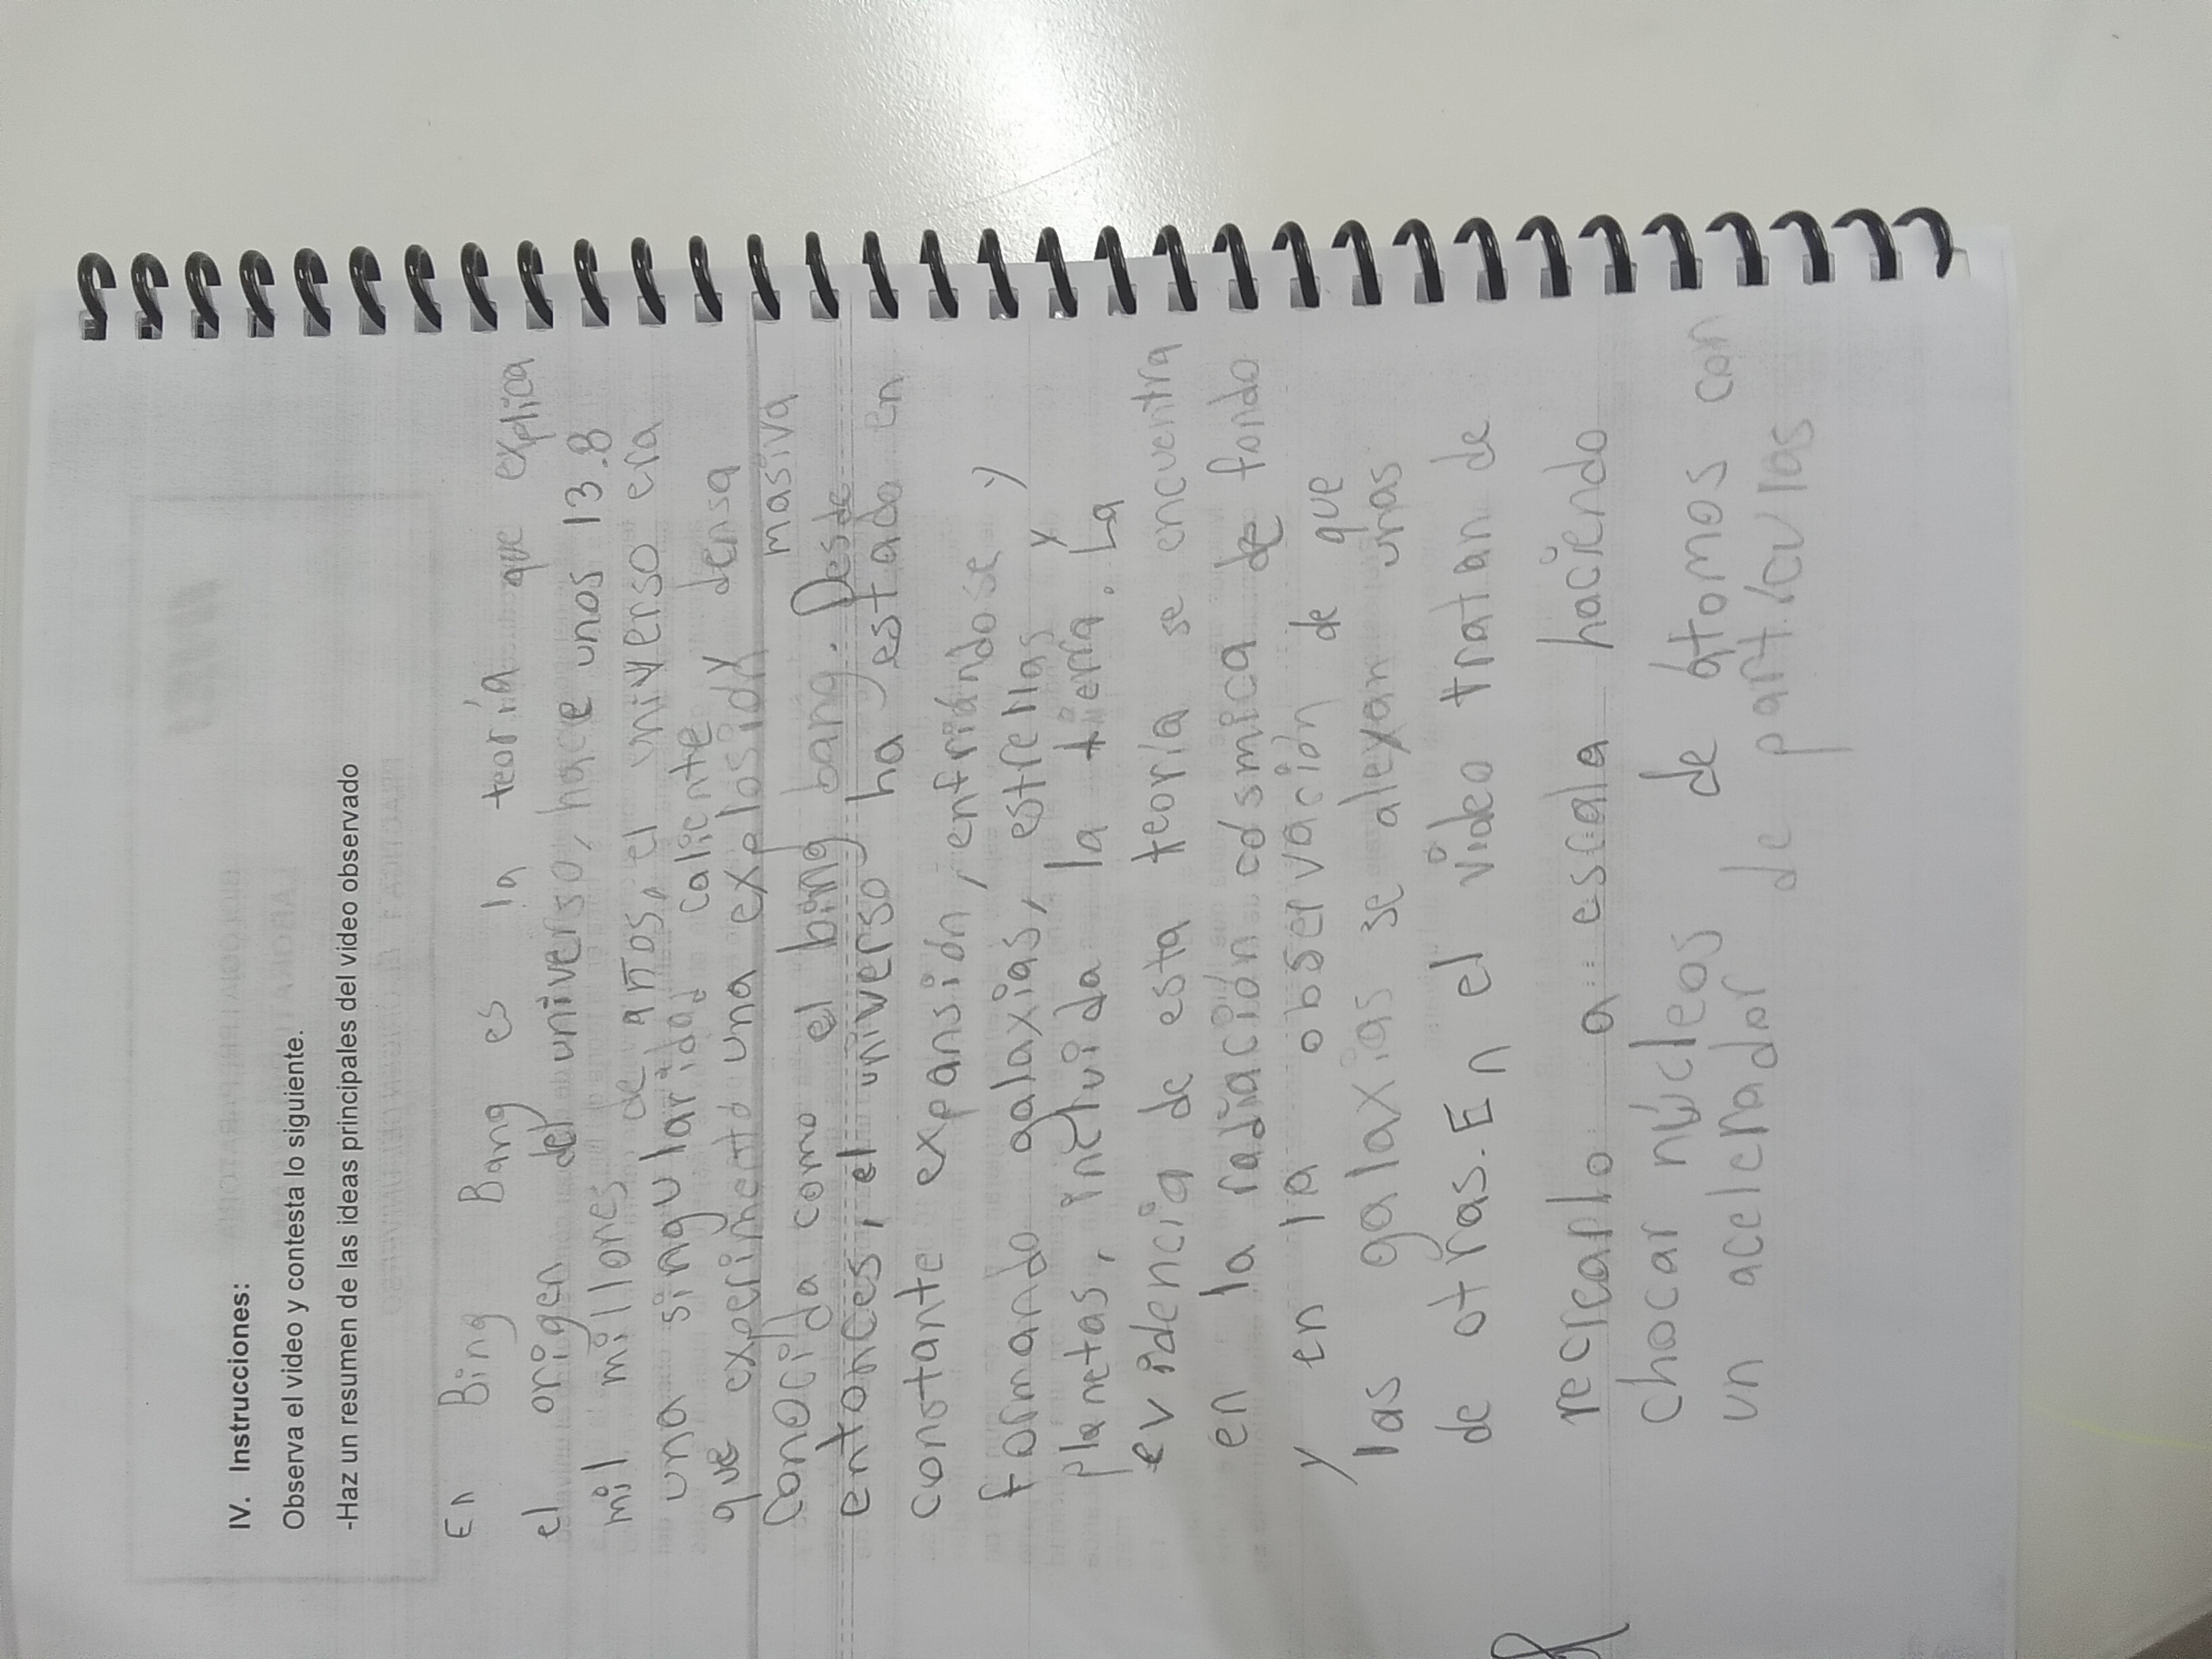 IV. Instrucciones:
Observa el video y contesta lo siguiente.
-Haz un resumen de las ideas principales del video observado
En Bing Bang es la teoría que explica
el origen del universo, hace unos 13.8
mil millones de años, el universo era
una singularidad caliente y densa
que experimento una explosión masiva
conocida como el bing bang. Desde
entonces, el universo ha estado en
constante expansión, enfriándose y
formando galaxias, estrellas y
planetas, incluida la tierra. La
evidencia de esta teoría se encuentra
en la radiación cósmica de fondo
y en la observación de que
las galaxias se alexan unas
de otras. En el video tratan de
recrearlo a escala haciendo
chocar núcleos de átomos con
un acelerador de particulas